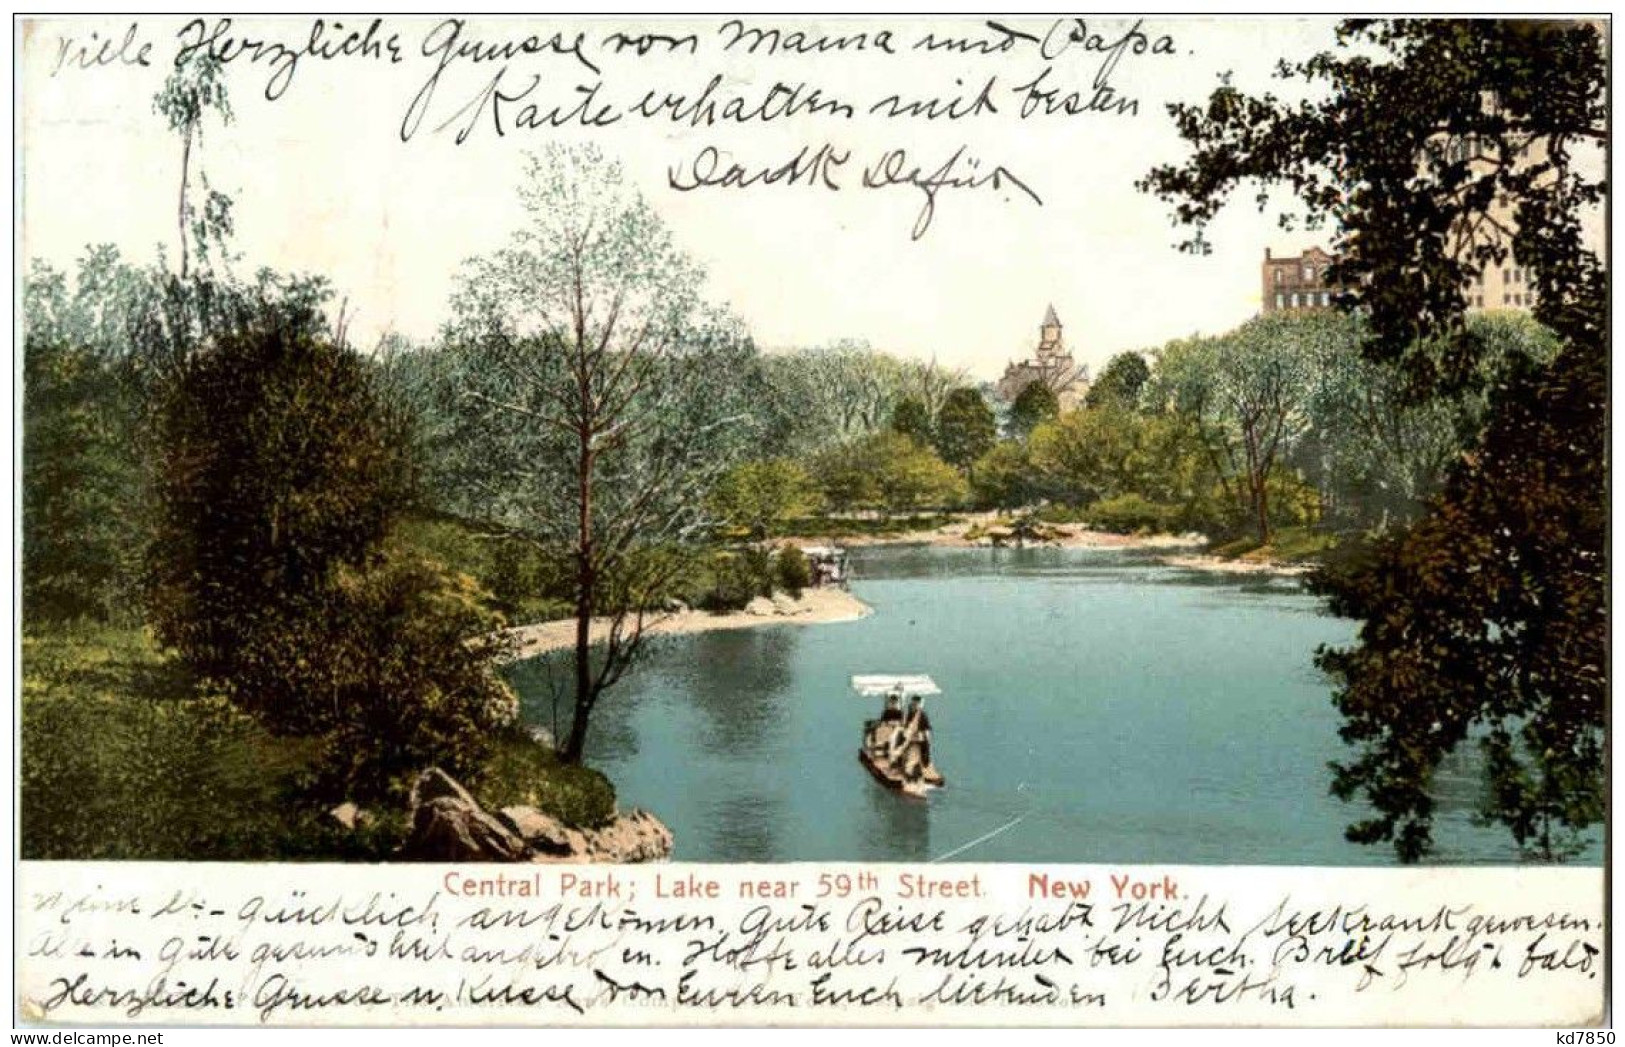 Viele Herzliche Grüsse von Mama und Papa.
Karte erhalten mit besten
Dank Dafür.
Central Park; Lake near 59th Street. New York.
Meine L. - glücklich angekomen. Gute Reise gehabt Nicht seekrank gewesen.
Alle in Gute gesundsheit angetrofen. Hoffe alles munter bei Euch. Brief folgt bald.
Herzliche Grusse u. Kusse von Euren Euch liebenden Bertha.
delcampe.net
kd7850